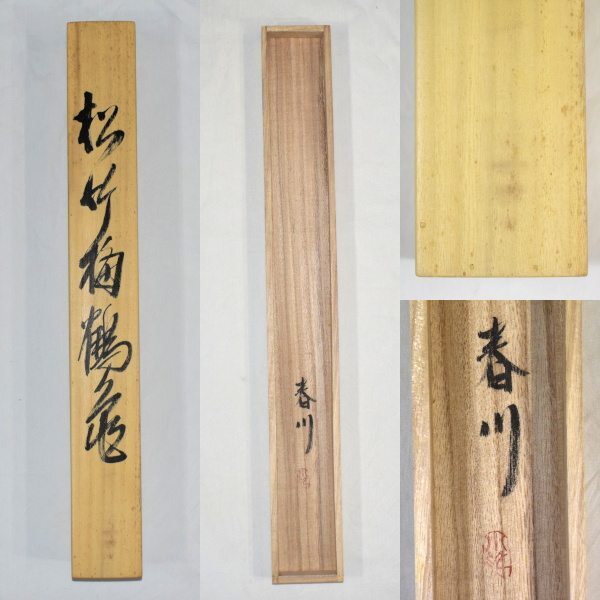 松竹梅鶴亀
春川
春川